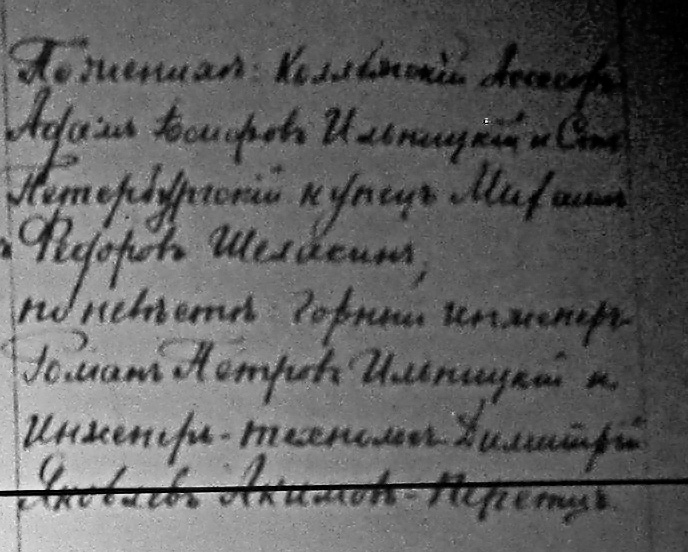 По женихѣ: Коллежскій Ассесоръ
Адамъ Іосифовъ Ильницкій и Санктъ
Петербургскій купецъ Михаилъ
Федоровъ Шелякинъ,
по невѣстѣ: Горный инженеръ
Романъ Петровъ Ильницкій и
Инженеръ-технологъ Димитрій
Яковлевъ Акимовъ-Перетцъ.